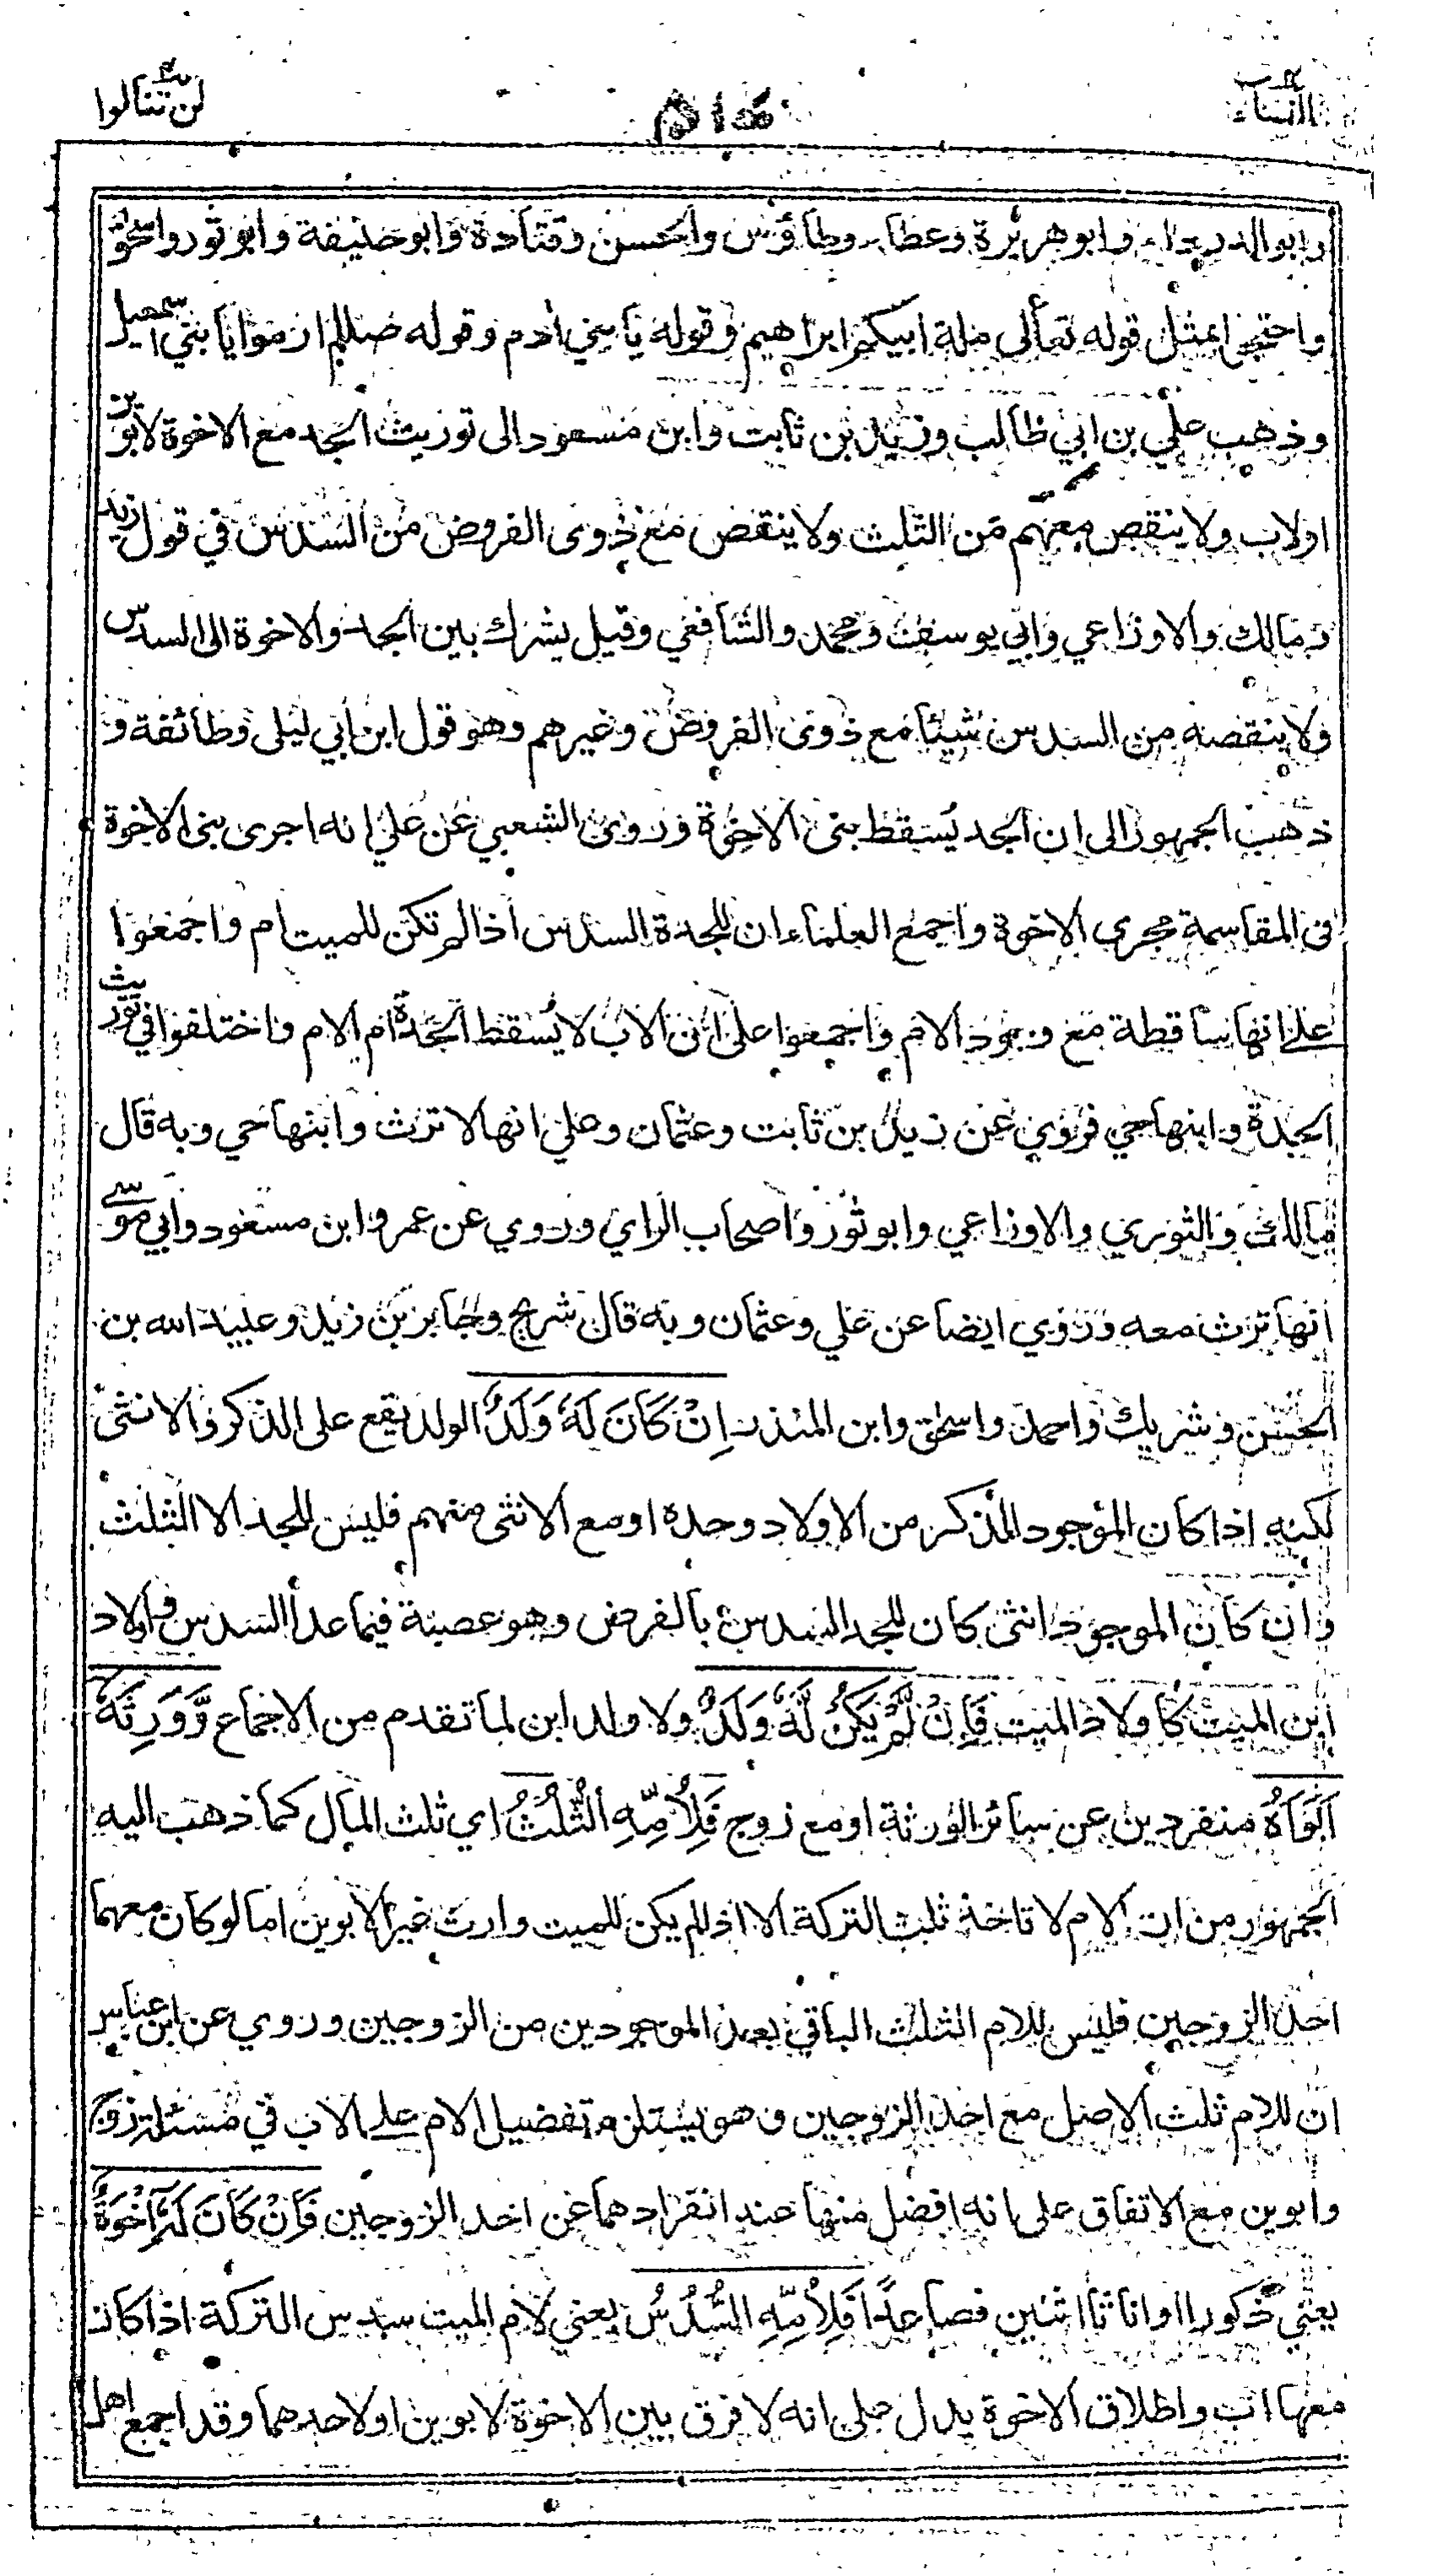 النساء
٥١٤
لن تنالوا
وابو الدرداء وابو هريرة وعطاء وطاؤس والحسن وقتادة وابو حنيفة وابو ثور واسحق
واحتجوا بمثل قوله تعالى ملة ابيكم ابراهيم وقوله يا بني أدم وقوله صللم ارموا يا بني اسمعيل
وذهب علي بن ابي طالب وزيد بن ثابت وابن مسعود الى توريث الجد مع الاخوة لابوين
اولاب ولا ينقص معهم من الثلث ولا ينقص مع ذوى الفروض من السدس في قول زيد
ومالك والاوزاعي وابي يوسف ومحمد والشافعي وقيل يشرك بين الجد والاخوة الى السدس
ولا ينقصه من السدس شيئا مع ذوى الفروض وغيرهم وهو قول ابن ابي ليلى وطائفة و
ذهب الجمهور الى ان الجد يُسقط بنى الاخوة وروى الشعبي عن علي انه اجرى بنى الاخوة
فى المقاسمة مجرى الاخوة واجمع العلماء ان للجدة السدس اذا لم تكن للميت ام واجمعوا
على انها ساقطة مع وجود الام واجمعوا على ان الاب لا يُسقط الجدة ام الام واختلفوا في توريث
الجدة وابنها حي فروي عن زيد بن ثابت وعثمان وعلي انها لا ترث وابنها حي وبه قال
مالك والثوري والاوزاعي وابو ثور واصحاب الراي وروي عن عمر وابن مسعود وابي موسى
انها ترث معه وروي ايضا عن علي وعثمان وبه قال شريح وجابر بن زيد وعبيد الله بن
الحسن وشريك واحمد واسحق وابن المنذر اِنْ كَانَ لَهٗ وَلَدٌ الولد يقع على الذكر والانثى
لكنه اذا كان الموجود الذكر من الاولاد وحده او مع الانثى منهم فليس للجد الا الثلث
وان كان الموجود انثى كان للجد السدس بالفرض وهو عصبة فيما عدا السدس واولاد
ابن الميت كاولاد الميت فَاِنْ لَّمْ يَكُنْ لَّهٗ وَلَدٌ ولا ولد ابن لما تقدم من الاجماع وَّوَرِثَهٗ
اَبَوَاهُ منفردين عن سائر الورثة او مع زوج فَلِاُمِّهِ الثُّلُثُ اي ثلث المال كما ذهب اليه
الجمهور من ان الام لا تاخذ ثلث التركة الا اذا لم يكن للميت وارث غير الابوين اما لو كان معهما
احد الزوجين فليس للام الا ثلث الباقي بعد الموجودين من الزوجين وروي عن ابن عباس
ان للام ثلث الاصل مع احد الزوجين وهو يستلزم تفضيل الام على الاب في مسئلة زوج
وابوين مع الاتفاق على انه افضل منها عند انفرادهما عن احد الزوجين فَاِنْ كَانَ لَهٗٓ اِخْوَةٌ
يعني ذكورا او اناثا اثنين فصاعدًا فَلِاُمِّهِ السُّدُسُ يعني لام الميت سدس التركة اذا كان
معها اب واطلاق الاخوة يدل على انه لا فرق بين الاخوة لابوين اولاحدهما وقد اجمع اهل